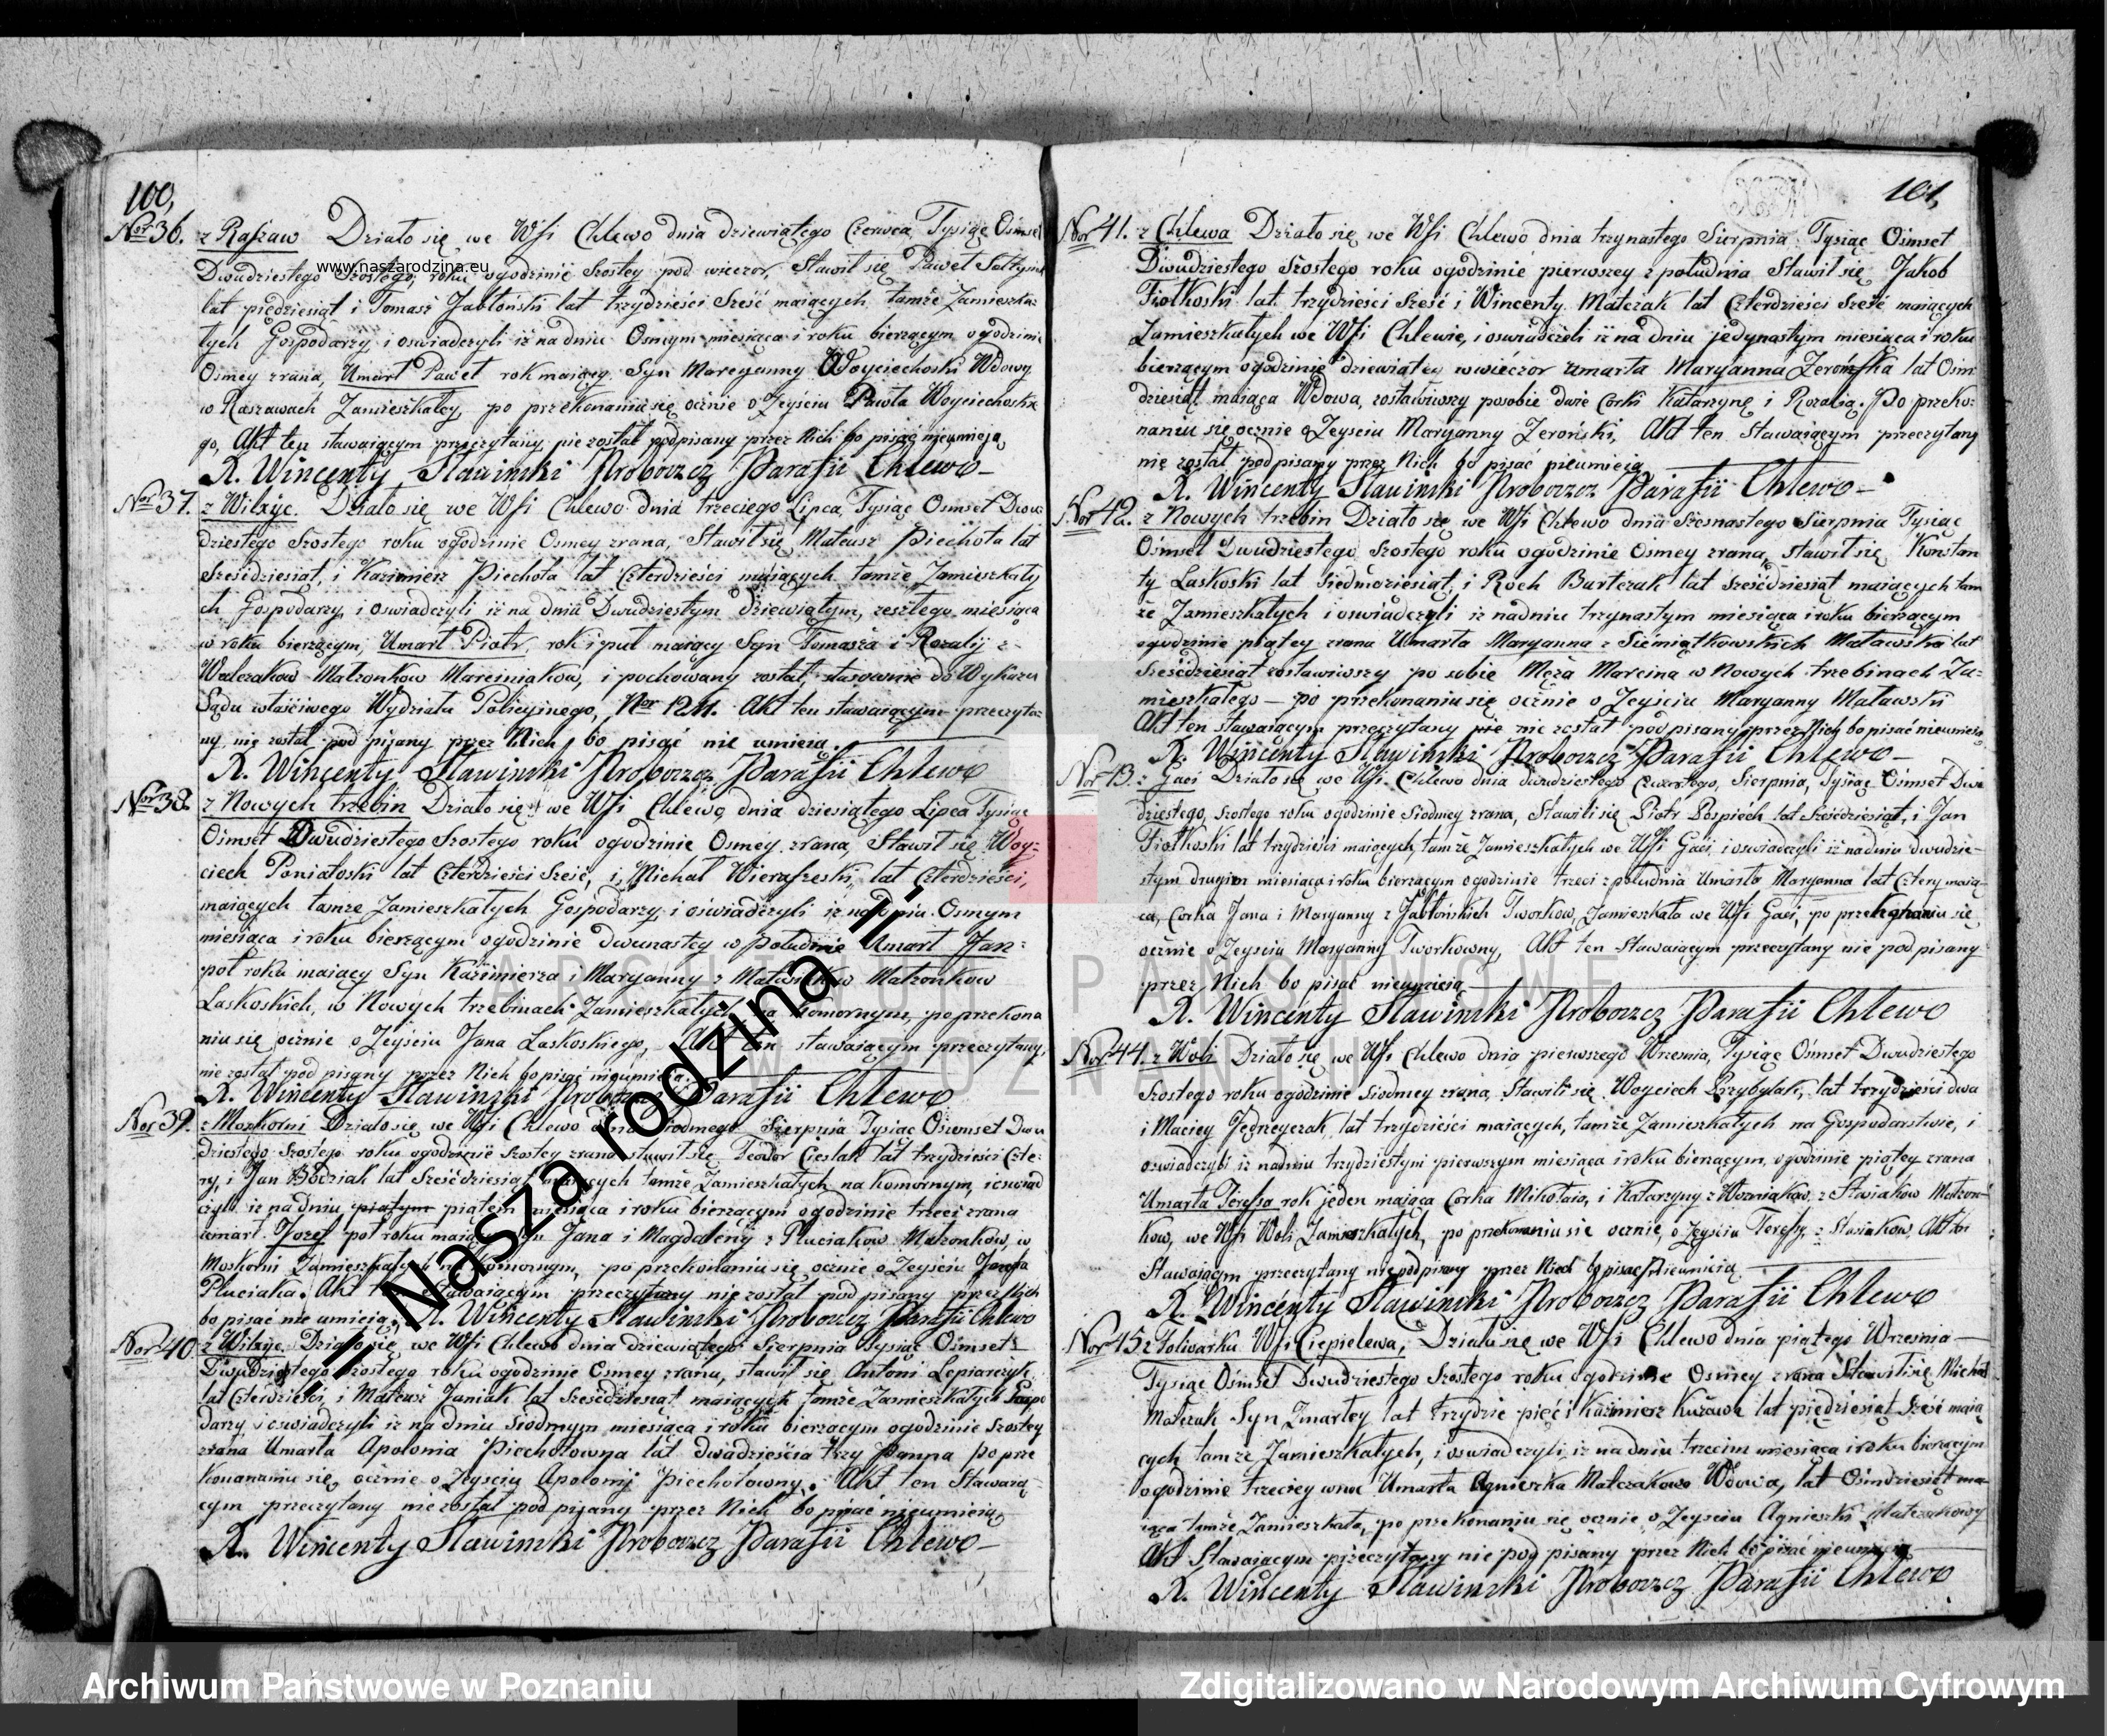 100,
Nor 36. z Raszaw Działo się we Wsi Chlewo dnia dziewiątego Czerwca Tysiąc Osmset
Dwudziestego Szostego roku ogodzinie Szostey pod wieczor, Stawił się Paweł Sołtys
www.naszarodzina.eu
lat pięćdziesiąt i Tomasz Jabłoński lat trzydzieści Sześć maiących tamże Zamieszka:
łych Gospodarzy i oswiadczyli iż na dniu Osmym miesiąca i roku bierzącym ogodzinie
Osmey zrana, Umarł Paweł rok maiący Syn Maryanny Woyciechoski Wdowy
w Raszawach Zamieszkałey, po przekonaniu się ocznie o Zeyściu Pawła Woyciechoskie
go, Akt ten stawaiącym przeczytany, nie został podpisany przez Nich bo pisać nieumieią,
X. Wincenty Sławinski Proboszcz Parafii Chlewo
Nor 37. z Wilxyc. Działo się we Wsi Chlewo dnia trzeciego Lipca Tysiąc Osmset Dwu
dziestego Szostego roku ogodzinie Osmey zrana, Stawił się Mateusz Piechota lat
Sześćdziesiąt, i Kazimierz Piechota lat Czterdzieści maiących tamże Zamieszkały
ch Gospodarzy, i oswiadczyli iż na dniu Dwudziestym dziewiątym, zeszłego miesiąca
w roku bierzącym, Umarł Piotr, rok i puł maiący Syn Tomasza i Rozalij z
Walczakow Małzonkow Marciniakow, i pochowany został, stosownie do Wykazu
Sądu właściwego Wydziału Policyinego, Nor 1211. Akt ten stawaiącym przeczyta:
ny, nie został pod pisany przez Nich, bo pisać nie umieią.
X. Wincenty Sławinski Proboszcz Parafii Chlewo
Nor 38. z Nowych trzebin Działo się we Wsi Chlewo dnia dziesiątego Lipca Tysiąc
Osmset Dwudziestego Szostego roku ogodzinie Osmey zrana, Stawił się Woy:
ciech Poniatoski lat Czterdzieści Sześć, i Michał Wieraszeski, lat Czterdzieści,
maiących tamże Zamieszkałych Gospodarzy i oświadczyli iż na dniu Osmym
miesiąca i roku bierzącym ogodzinie dwunastey w południe Umarł Jan
poł roku maiący Syn Kazimierza i Maryanny z Małzonkow
Laskoskich, w Nowych trzebinach Zamieszkałych Komornym, po przekona
niu się ocznie o Zeyściu Jana Laskoskiego, Akt ten stawaiącym przeczytany,
nie został pod pisany przez Nich bo pisać nieumieią.
X. Wincenty Sławinski Proboszcz Parafii Chlewo
Nor 39. z Moskorni Działo się we Wsi Chlewo dnia Siodmego Sierpnia Tysiąc Osiemset Dwu
dziestego Szostego roku ogodzinie Szostey zrana stawił się Teodor Cieslak lat trzydzieści Czte:
ry, i Jan lat Sześćdziesiąt maiących tamże Zamieszkałych na komornym, i oswiad
czyli iż na dniu piątym piątem miesiąca i roku bierzącym ogodzinie trzeci zrana
umarł Jozef poł roku maiący Syn Jana i Magdaleny z Pluciakow Małzonkow, w
Moskorni Zamieszkałych na Komornym, po przekonaniu się ocznie o Zeyściu Jozefa
Pluciaka. Akt ten stawaiącym przeczytany nie został pod pisany przez Nich
bo pisać nie umieią. X. Wincenty Sławinski Proboszcz Parafii Chlewo
Nor 40. z Wilxyc Działo się we Wsi Chlewo dnia dziewiątego Sierpnia Tysiąc Osmset
Dwudziestego Szostego roku ogodzinie Osmey zrana, stawił się Antoni Lepiarczyk
lat Czterdzieści, i Mateusz Janiak lat Sześćdziesiąt maiących tamże Zamieszkałych Gospo
darzy i oswiadczyli iż na dniu Siodmym miesiąca i roku bierzącym ogodzinie Szostey
zrana Umarła Apolonia Piechotowna lat dwadzieścia trzy Panna po prze
konaniu się ocznie o Zeyściu Apolonij Piechotowny. Akt ten Stawaią
cym przeczytany nie został pod pisany przez Nich bo pisać nieumieią
X. Wincenty Sławinski Proboszcz Parafii Chlewo
101,
Nor 41. z Chlewa Działo się we Wsi Chlewo dnia trzynastego Sierpnia Tysiąc Osmset
Dwudziestego Szostego roku ogodzinie pierwszey z południa Stawił się Jakob
Fiołkoski lat trzydzieści Sześć i Wincenty Matczak lat Czterdzieści Sześć maiących
Zamieszkałych we Wsi Chlewie, i oswiadczeli iż na dniu jedynastym miesiąca i roku
bierzącym ogodzinie dziewiątey wwieczor umarła Maryanna Zerońska lat Osm
dziesiąt maiąca Wdowa, zostawiwszy posobie dwie Corki Katarzynę i Rozalią. Po przeko:
naniu się ocznie o Zeysciu Maryanny Zeroński, Akt ten Stawaiącym przeczytany
nie został podpisany przez Nich bo pisać nieumieią
X. Wincenty Sławinski Proboszcz Parafii Chlewo
Nor 42. z Nowych trzebin Działo się we Wsi Chlewo dnia Szesnastego Sierpnia Tysiąc
Osmset Dwudziestego Szostego roku ogodzinie Osmey zrana, stawił się Konstan
ty Laskoski lat Siedmdziesiąt, i Roch Burtczak lat Sześćdziesiąt maiących tam
że Zamieszkałych i oswiadczyli iż nadniu trzynastym miesiąca i roku bierzącym
ogodzinie piątey zrana Umarła Maryanna z Siemiątkowskich Matawska lat
Sześćdziesiąt zostawiwszy po sobie Męża Marcina w Nowych trzebinach Za:
mieszkałego — po przekonaniu się ocznie o Zeyściu Maryanny Matawski
Akt ten stawaiącym przeczytany nie został pod pisany przez Nich bo pisać nieumieią
X. Wincenty Sławinski Proboszcz Parafii Chlewo
Nor 43. z Gaci Działo się we Wsi Chlewo dnia dwudziestego Czwartego, Sierpnia, Tysiąc Osmset Dwu
dziestego, szostego roku ogodzinie Siodmey zrana, Stawili się Piotr Pospiech lat Sześćdziesiąt, i Jan
Fiołkoski lat trzydzieści maiących, tamże Zamieszkałych we Wsi Gaci, i oswiadczyli iż na dniu dwudzie
stym drugim miesiąca i roku bierzącym ogodzinie trzeci z południa Umarła Maryanna lat Cztery maią
ca, Corka Jana i Maryanny z Jabłońskich Tworkow, Zamieszkała we Wsi Gaci, po przekonaniu się
ocznie o Zeysciu Maryanny Tworkowny, Akt ten Stawaiącym przeczytany nie pod pisany
przez Nich bo pisać nieumieią
X. Wincenty Sławinski Proboszcz Parafii Chlewo
Nor 44. z Woli Działo się we Wsi Chlewo dnia pierwszego Wrzesnia, Tysiąc Osmset Dwudziestego
Szostego roku ogodzinie Siodmey zrana, Stawili się Woyciech Przybylak, lat trzydzieści dwa
i Maciey Jędrzyczak, lat trzydzieści maiących, tamże Zamieszkałych na Gospodarstwie, i
oswiadczyli iż nadniu trzydziestym pierwszym miesiąca i roku bierzącym, ogodzinie piątey zrana
Umarła Teressa rok jeden maiąca Corka Mikołaia, i Katarzyny z Wozniakow, z Stasiakow Małzon
kow, we Wsi Woli Zamieszkałych, po przekonaniu się ocznie, o Zeysciu Teressy, z Stasiakow, Akt ten
Stawaiącym przeczytany nie podpisany przez Nich bo pisać nieumieią
X. Wincenty Sławinski Proboszcz Parafii Chlewo
Nor 45. z Folwarku Wsi Ciepielewa, Działo się we Wsi Chlewo dnia piątego Wrzesnia
Tysiąc Osmset Dwudziestego Szostego roku ogodzinie Osmey zrana Stawili się Michał
Matczak Syn Zmarłey lat trzydzie pięć i Kazimierz Kuzawa lat pięćdziesiąt Sześć maią
cych tamże Zamieszkałych, i oswiadczyli, iż na dniu trzecim miesiąca i roku bierzącym
ogodzinie trzeciey wnoc Umarła Agnieszka Matczakowa Wdowa, lat Osmdziesiąt ma
iąca tamże Zamieszkała, po przekonaniu się ocznie o Zeysciu Agnieszki Matczakowy
Akt Stawaiącym przeczytany nie pod pisany przez Nich bo pisać nieumieią
X. Wincenty Sławinski Proboszcz Parafii Chlewo
ARCHIWUM PAŃSTWOWE
W POZNANIU
"Nasza rodzina II"
Archiwum Państwowe w Poznaniu
Zdigitalizowano w Narodowym Archiwum Cyfrowym